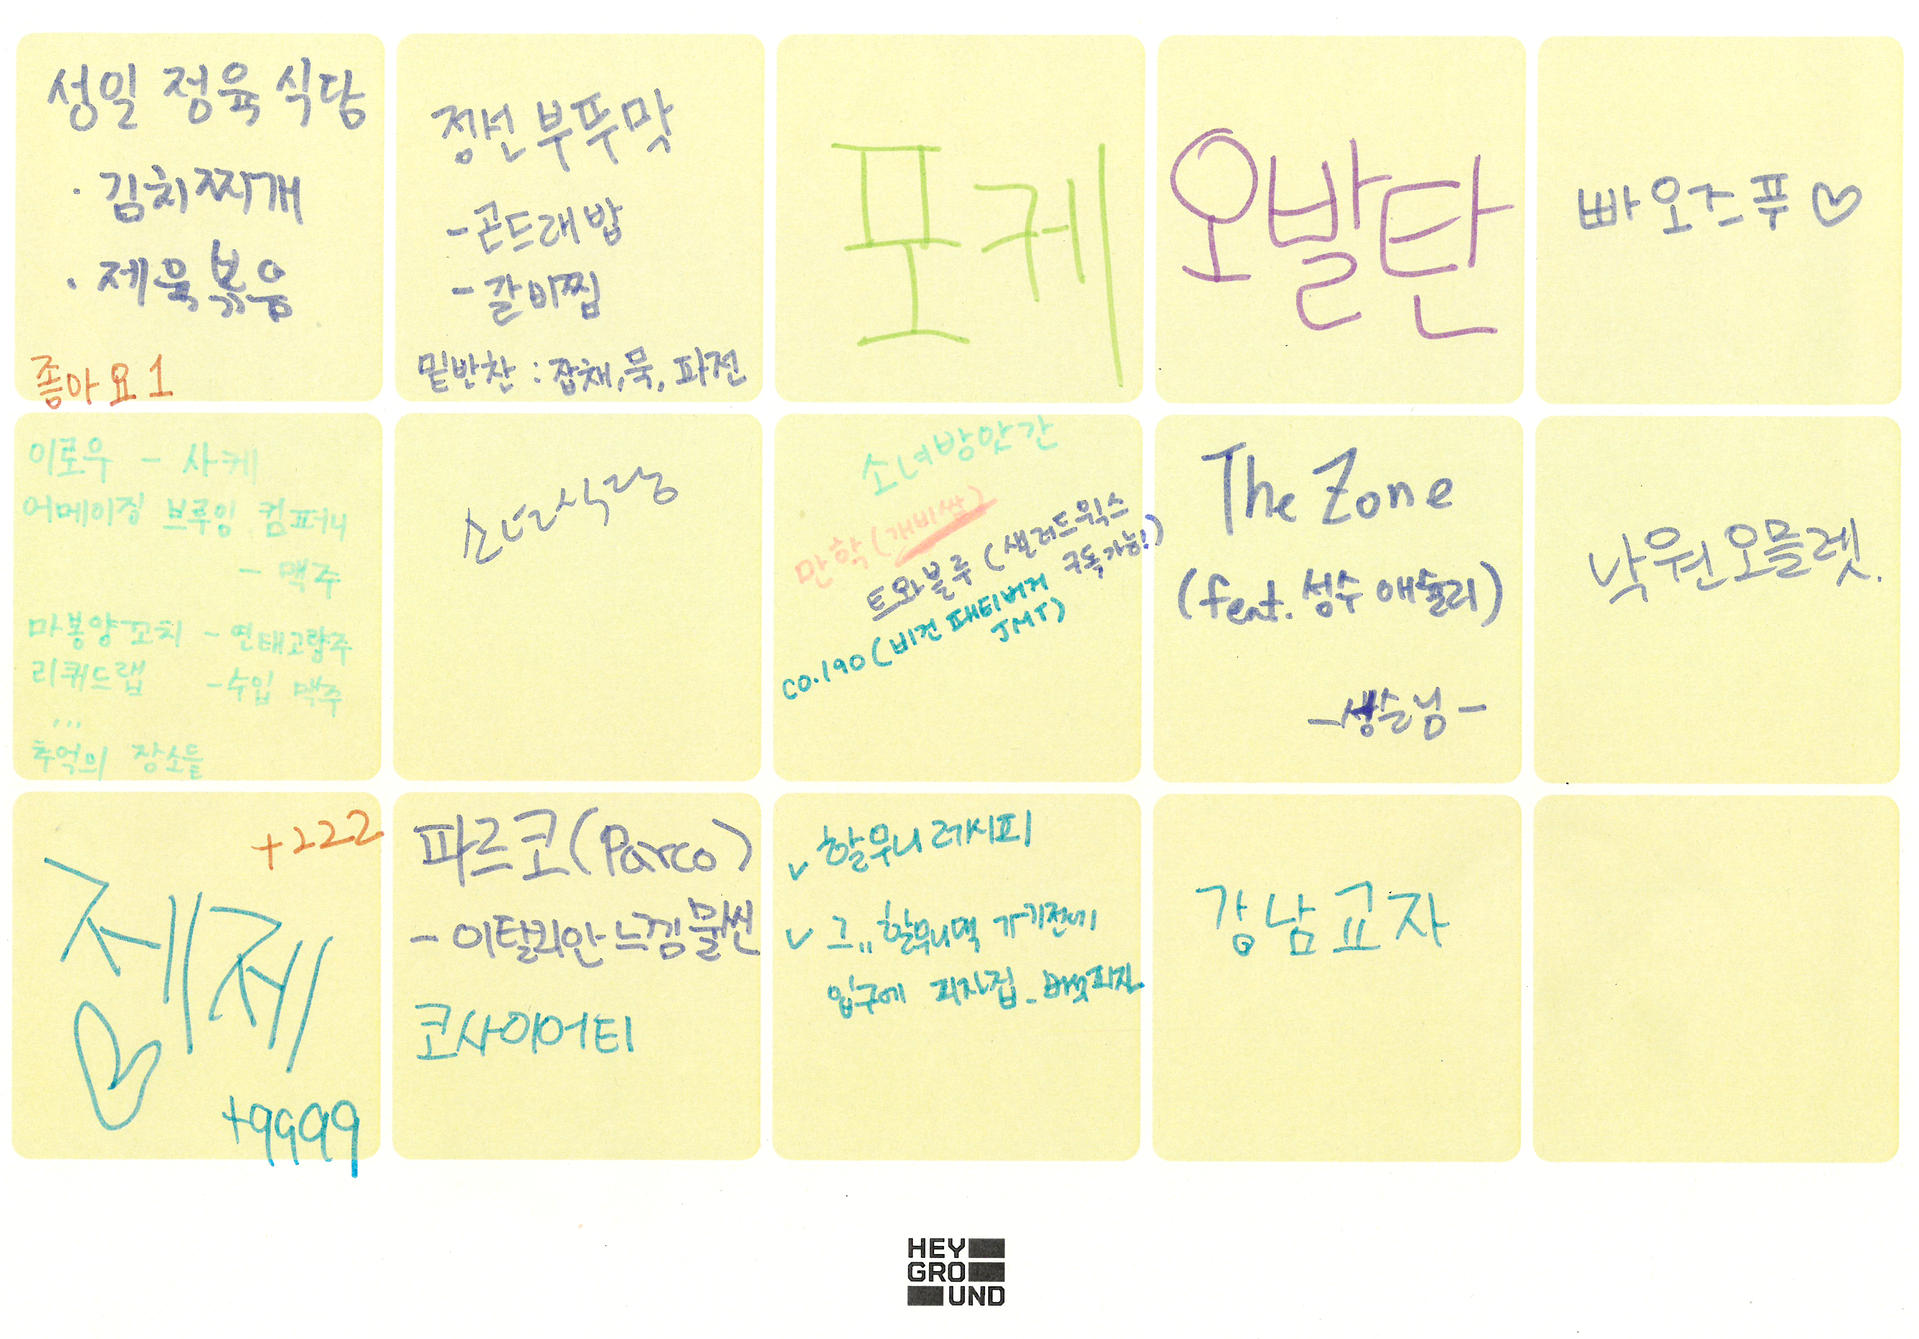 성일 정육 식당
· 김치찌개
· 제육볶음
좋아요 1
정선 부뚜막
- 곤드래밥
- 갈비찜
밑반찬 : 잡채, 묵, 파전
포케
오발탄
빠오즈푸♡
이로우 - 사케
어메이징 브루잉 컴퍼니
- 맥주
마봉양꼬치 - 연태고량주
리쿼드랩 - 수입 맥주
...
추억의 장소들
소녀식당
소녀방앗간
만학 (개비쌈)
트와블루 (샐러드윅스
구독가능!)
co.190 (비건 패티버거
JMT)
The Zone
(feat. 성수 애슐리)
낙원오믈렛.
+222
제제
+9999
파르코 (Parco)
- 이탈리안 느낌 물씬
코사이어티
✓ 할무니 레시피
✓ 그,, 할무니댁 가기전에
입구에 피자집 - 버섯피자
강남교자
HEY
GRO
UND